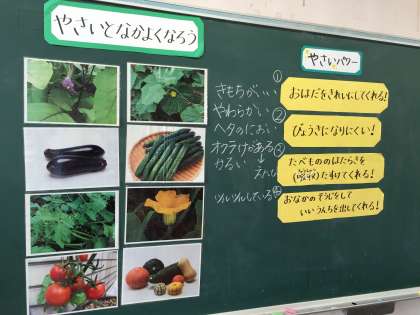 やさいとなかよくなろう
やさいパワー
①
おはだをきれいにしてくれる!
きもちがいい
やわらかい
②
びょうきになりにくい!
ヘタのにおい
③
たべもののはたらきを
(吸収)たすけてくれる!
かるい
ツルツルしている
おなかのそうじをして
いいうんちを出してくれる!